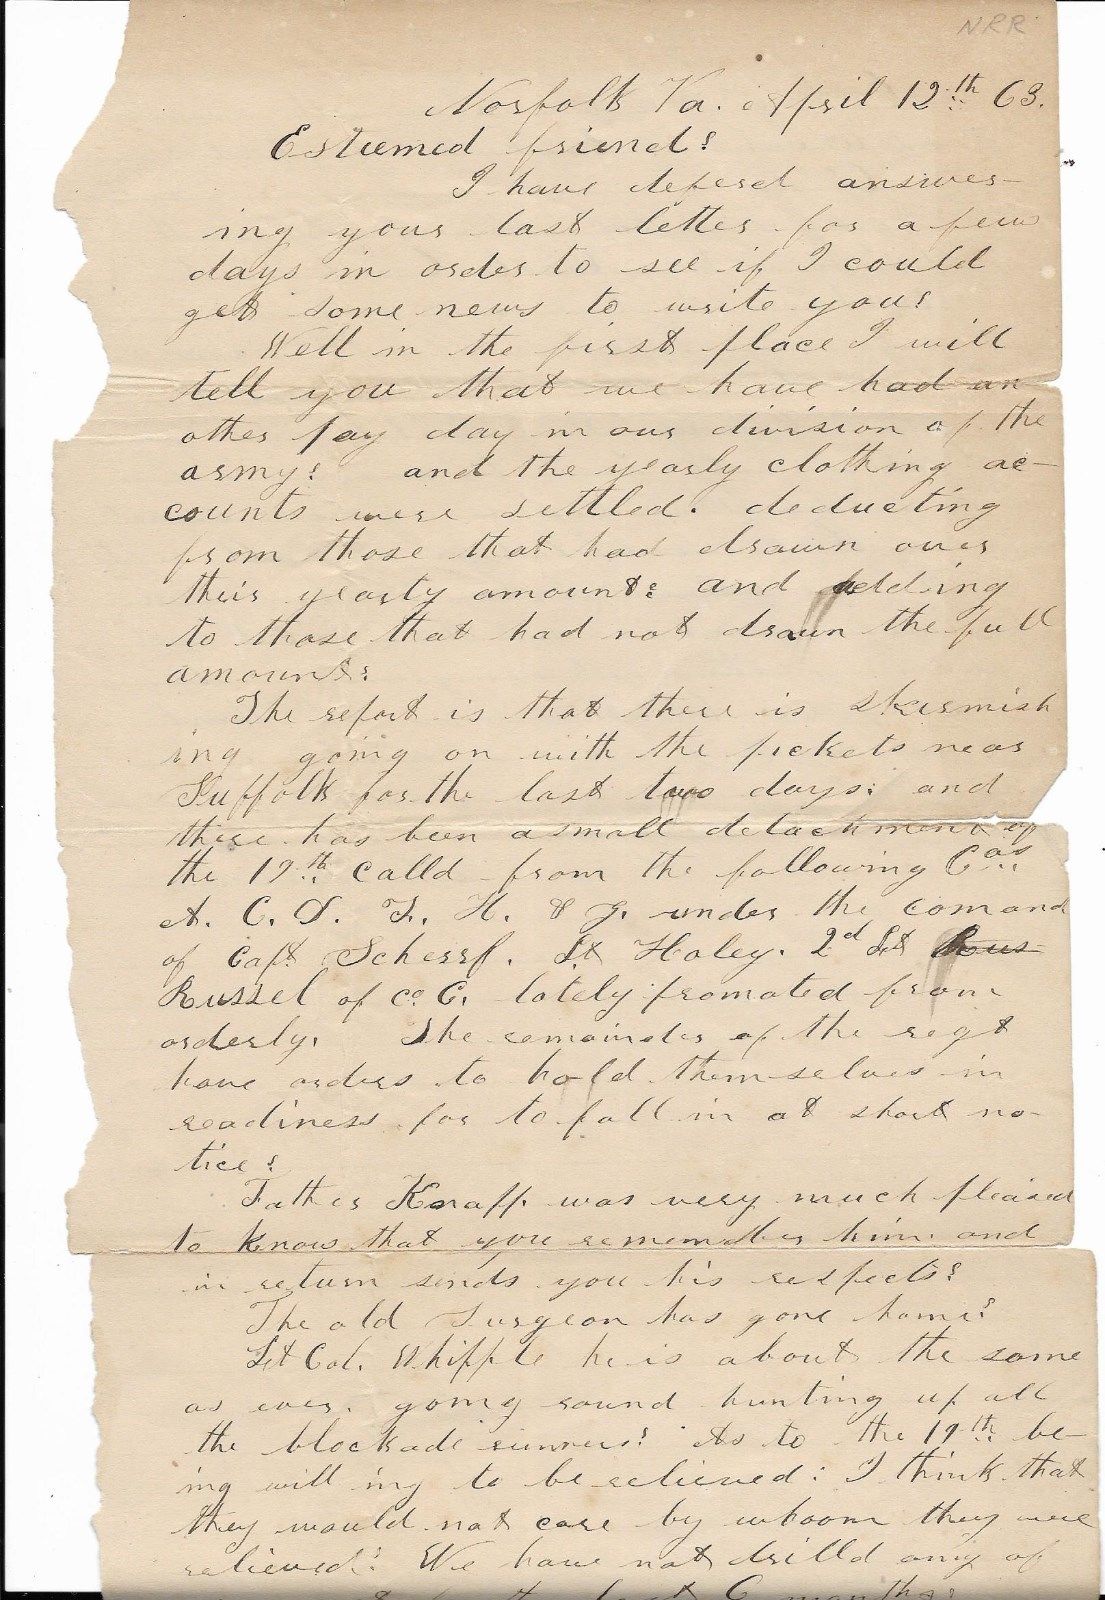 NRR
Norfolk Va. April 12th 63.
Esteemed friend:
I have deferd answer-
ing your last letter for a few
days in order to see if I could
get some news to write you:
Well in the first place I will
tell you that we have had an
other pay day in our division of the
army: and the yearly clothing ac-
counts were settled. deducting
from those that had drawn over
their yearly amount: and adding
to those that had not drawn the full
amount:
The report is that there is skermish
ing going on with the pickets near
Suffolk for the last two days: and
there has been a small detachment of
the 19th calld from the following Cos
A. C. D. F. H. & G. under the comand
of Capt Scherrf. Lt Haley. 2d Lt Rus
Russel of co C. lately promoted from
orderly. The remainder of the regt
have orders to hold themselves in
readiness for to fall in at short no-
tice:
Father Knapp was very much pleased
to know that you remember him and
in return sends you his respects:
The old Surgeon has gone home:
Lt Col. Whipple he is about the same
as ever. going round hunting up all
the blockade runners: As to the 19th be-
ing willing to be relieved: I think that
they would not care by whoom they were
relieved: We have not drilld any of
last 6 months: